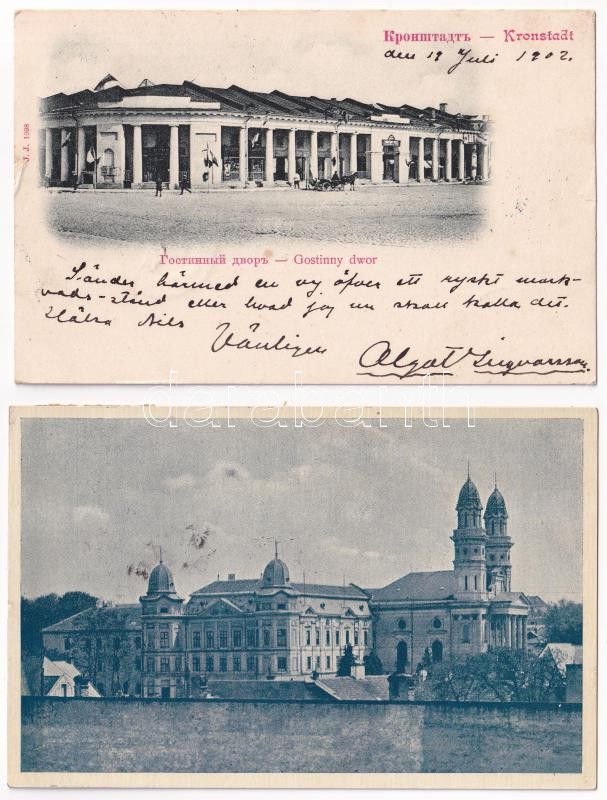 Кронштадтъ — Kronstadt
den 19 Juli 1902.
J. J. 1598
Гостинный дворъ — Gostinny dwor
Sänder härmed en vy öfver ett ryskt mark-
nads-stånd eller hvad jag nu skall kalla det.
Hälsa Nils
Vänligen
Algot Ingvarsson
darabanth.com